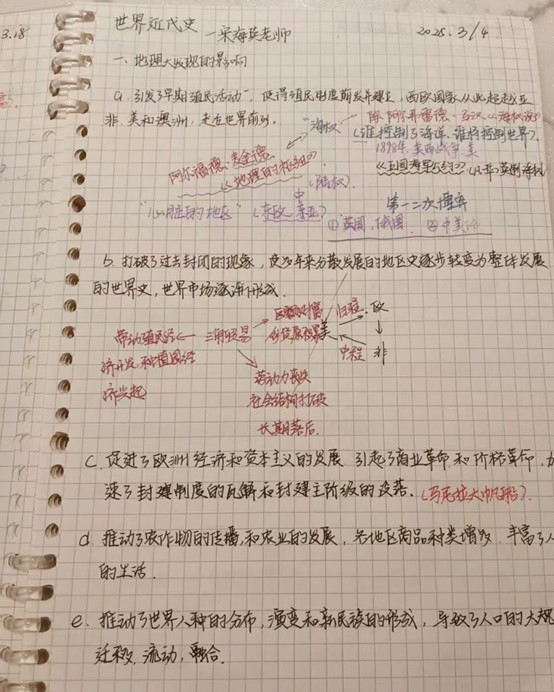 3.18
世界近代史 —宋海英老师 2025.3/4
一、地理大发现的影响
a. 引发了早期殖民活动, 使得殖民制度萌发并建立, 西欧国家从此起
非、美和澳洲, 走在世界前列.
"海权"
(谁控制了海洋, 谁将控制世界).
1898年 美西战争 美
阿尔弗德·麦金德
《地理的枢纽》
(陆权)
"心脏的地区" (东欧、中亚)
第一二次博弈
①英国、俄国 ②中美
b. 打破了过去封闭的现象, 使多年来分散发展的地区史逐步转变为整体发展
的世界史, 世界市场逐渐形成.
带动殖民经
济开发, 种植园经
济兴起
三角贸易
美
归程
欧
中程
非
劳动力丧失
社会结构打破
长期落后.
c. 促进了欧洲经济和资本主义的发展 引起了商业革命和价格革命, 加
速了封建制度的瓦解和封建主阶级的没落. (马尼拉大帆船)
d. 推动了农作物的传播, 和农业的发展, 各地区商品种类增多, 丰富了人
的生活.
e. 推动了世界人种的分布, 演变和新民族的形成, 导致了人口的大规
迁移, 流动, 融合.